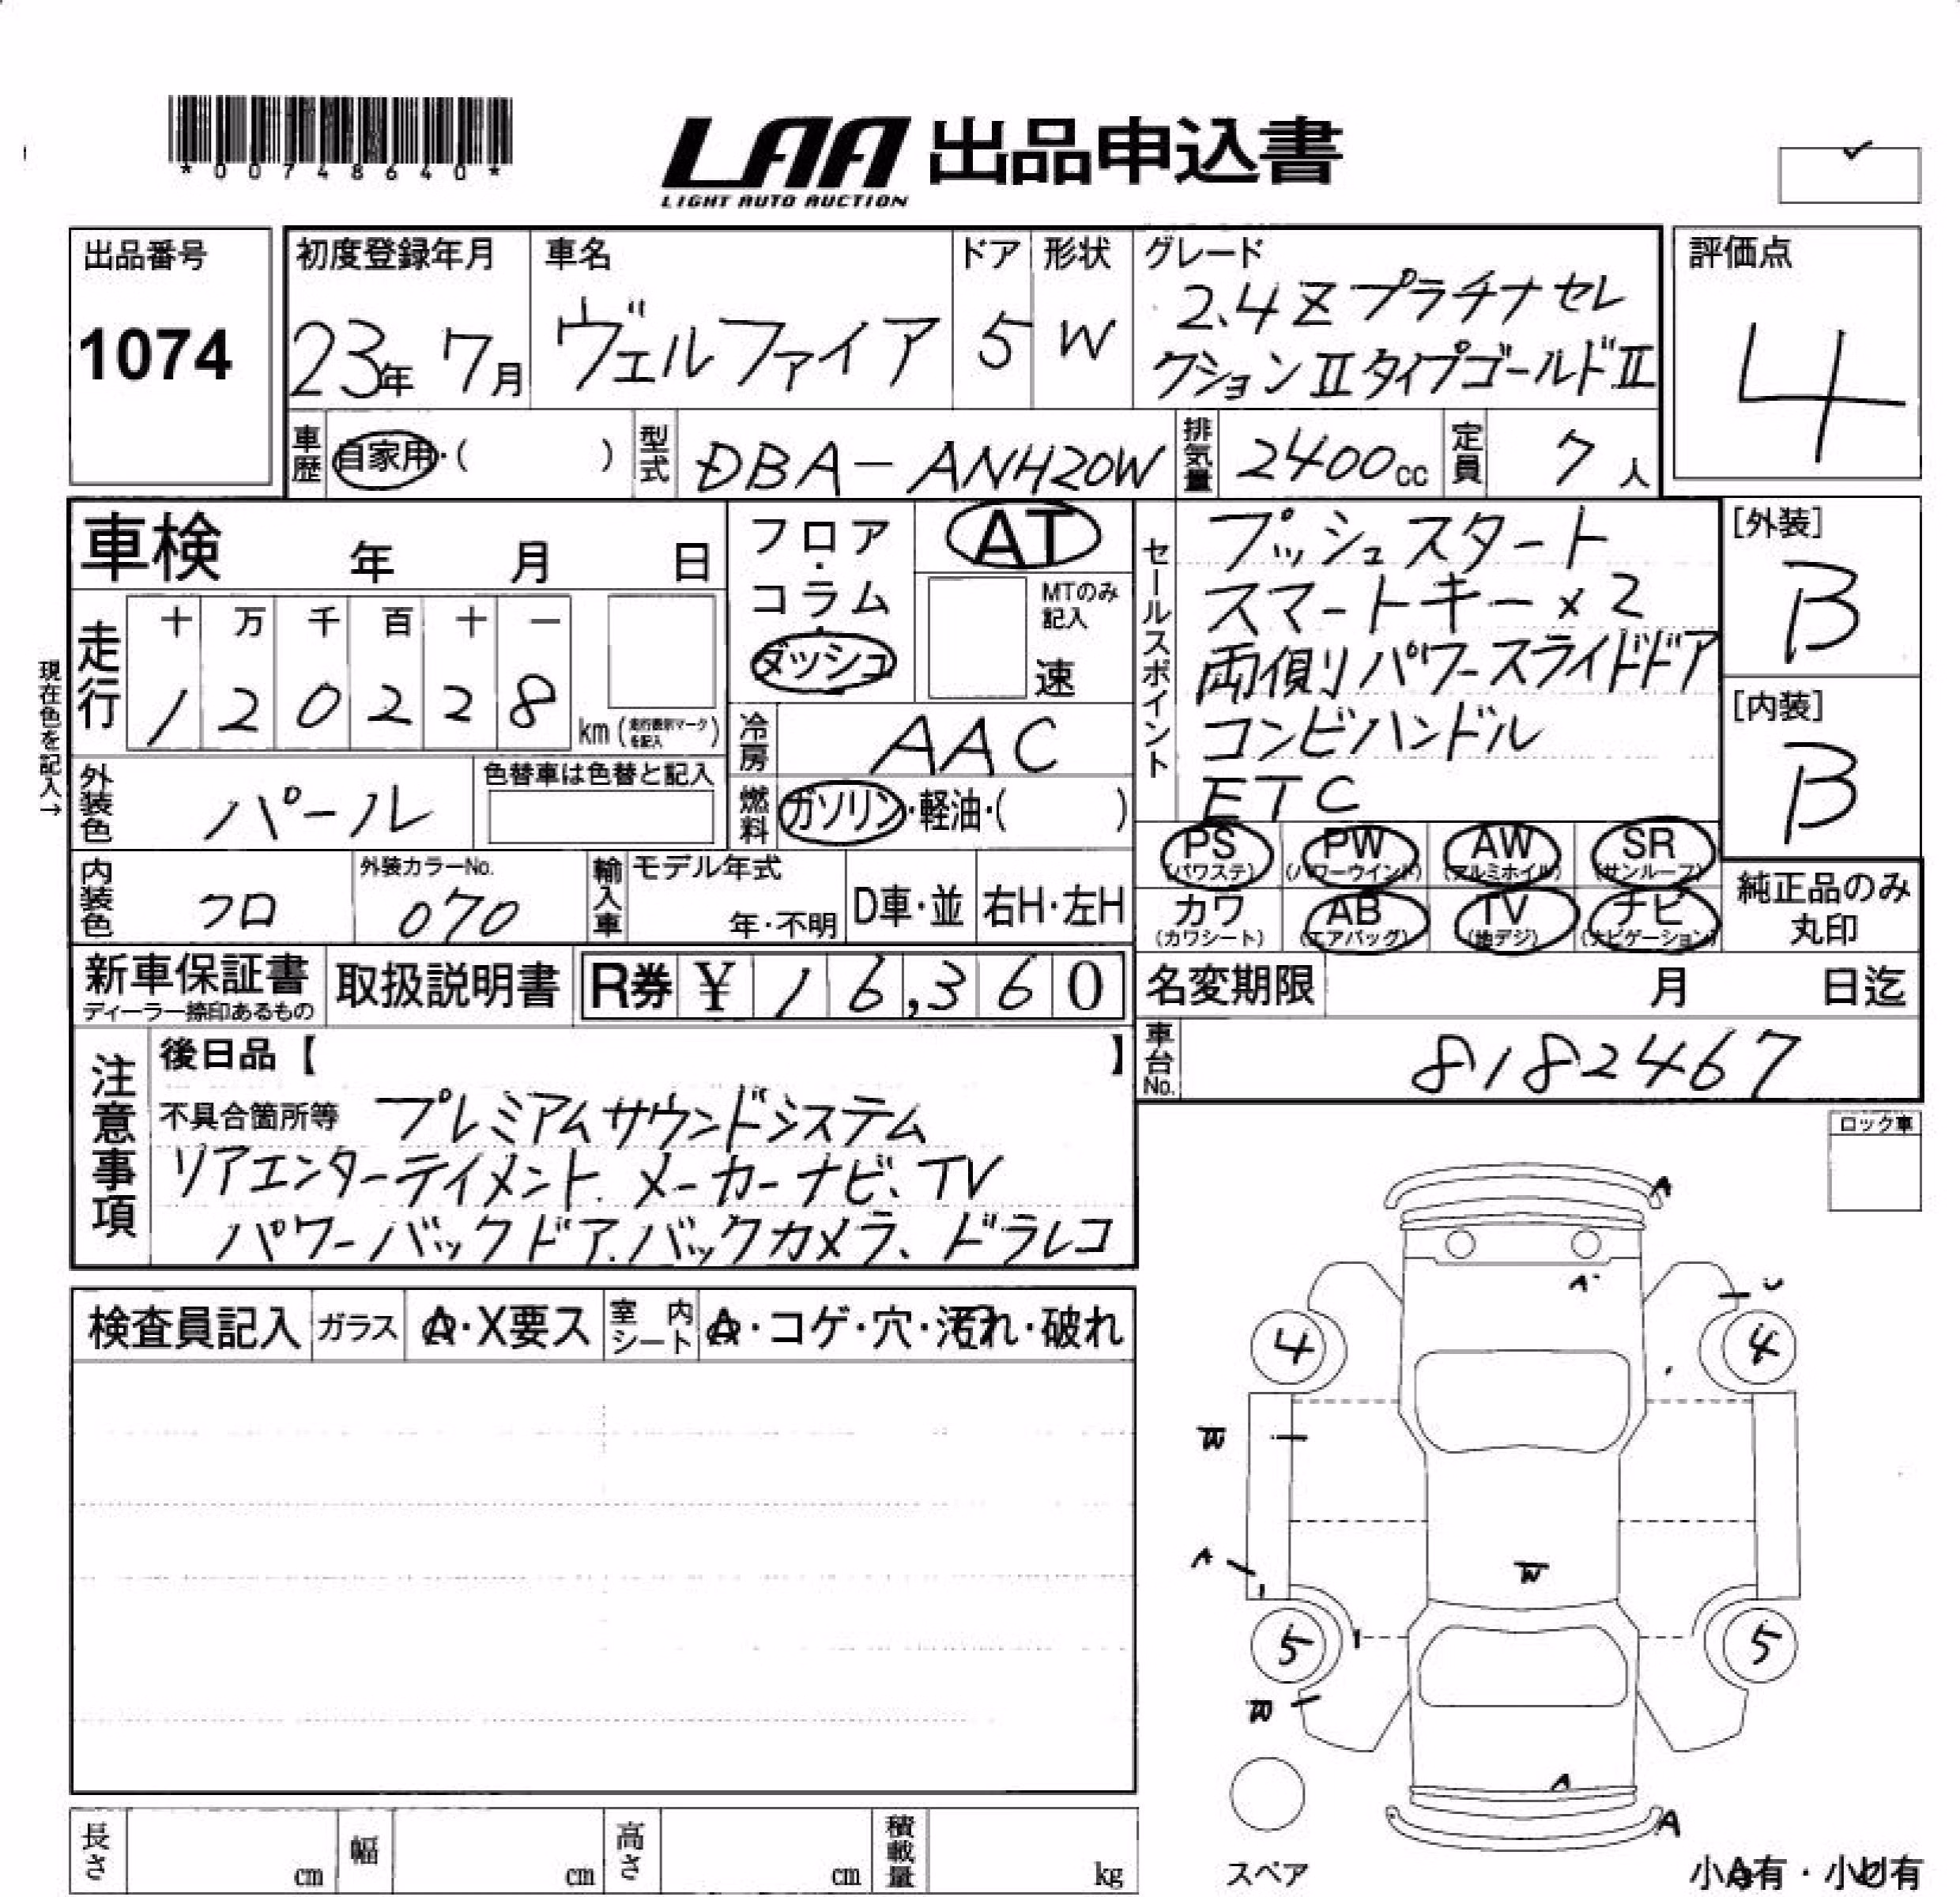 *00748640*
LAA 出品申込書
LIGHT AUTO AUCTION
出品番号
1074
初度登録年月
23年 7月
車名
ヴェルファイア
ドア
5
形状
W
グレード
2.4Z プラチナセレ
クションⅡタイプゴールドⅡ
評価点
4
車歴
自家用・( )
型式
DBA-ANH20W
排気量
2400cc
定員
7人
車検 年 月 日
走行
十 万 千 百 十 一
1 2 0 2 2 8
km (走行表示マークを記入)
現在色を記入→
外装色
パール
色替車は色替と記入
内装色
クロ
外装カラーNo.
070
フロア・
コラム・
ダッシュ
AT
MTのみ
記入
速
冷房
AAC
燃料
ガソリン・軽油・( )
輸入車
モデル年式
年・不明
D車・並
右H・左H
セールスポイント
プッシュスタート
スマートキー×2
両側リパワースライドドア
コンビハンドル
ETC
[外装]
B
[内装]
B
PS
(パワステ)
PW
(パワーウインド)
AW
(アルミホイル)
SR
(サンルーフ)
カワ
(カワシート)
AB
(エアバッグ)
TV
(地デジ)
ナビ
(ナビゲーション)
純正品のみ
丸印
新車保証書
ディーラー捺印あるもの
取扱説明書
R券 ¥16,360
名変期限 月 日迄
車台No.
8182467
注意事項
後日品【 】
不具合箇所等 プレミアムサウンドシステム
リアエンターテイメント.メーカーナビ、TV
パワーバックドア.バックカメラ、ドラレコ
ロック車
検査員記入
ガラス
A・X要ス
室内シート
A・コゲ・穴・汚れ・破れ
A
A
U
4
4
W
A
W
5
5
W
A
A
スペア
小A有・小U有
長さ cm
幅 cm
高さ cm
積載量 kg